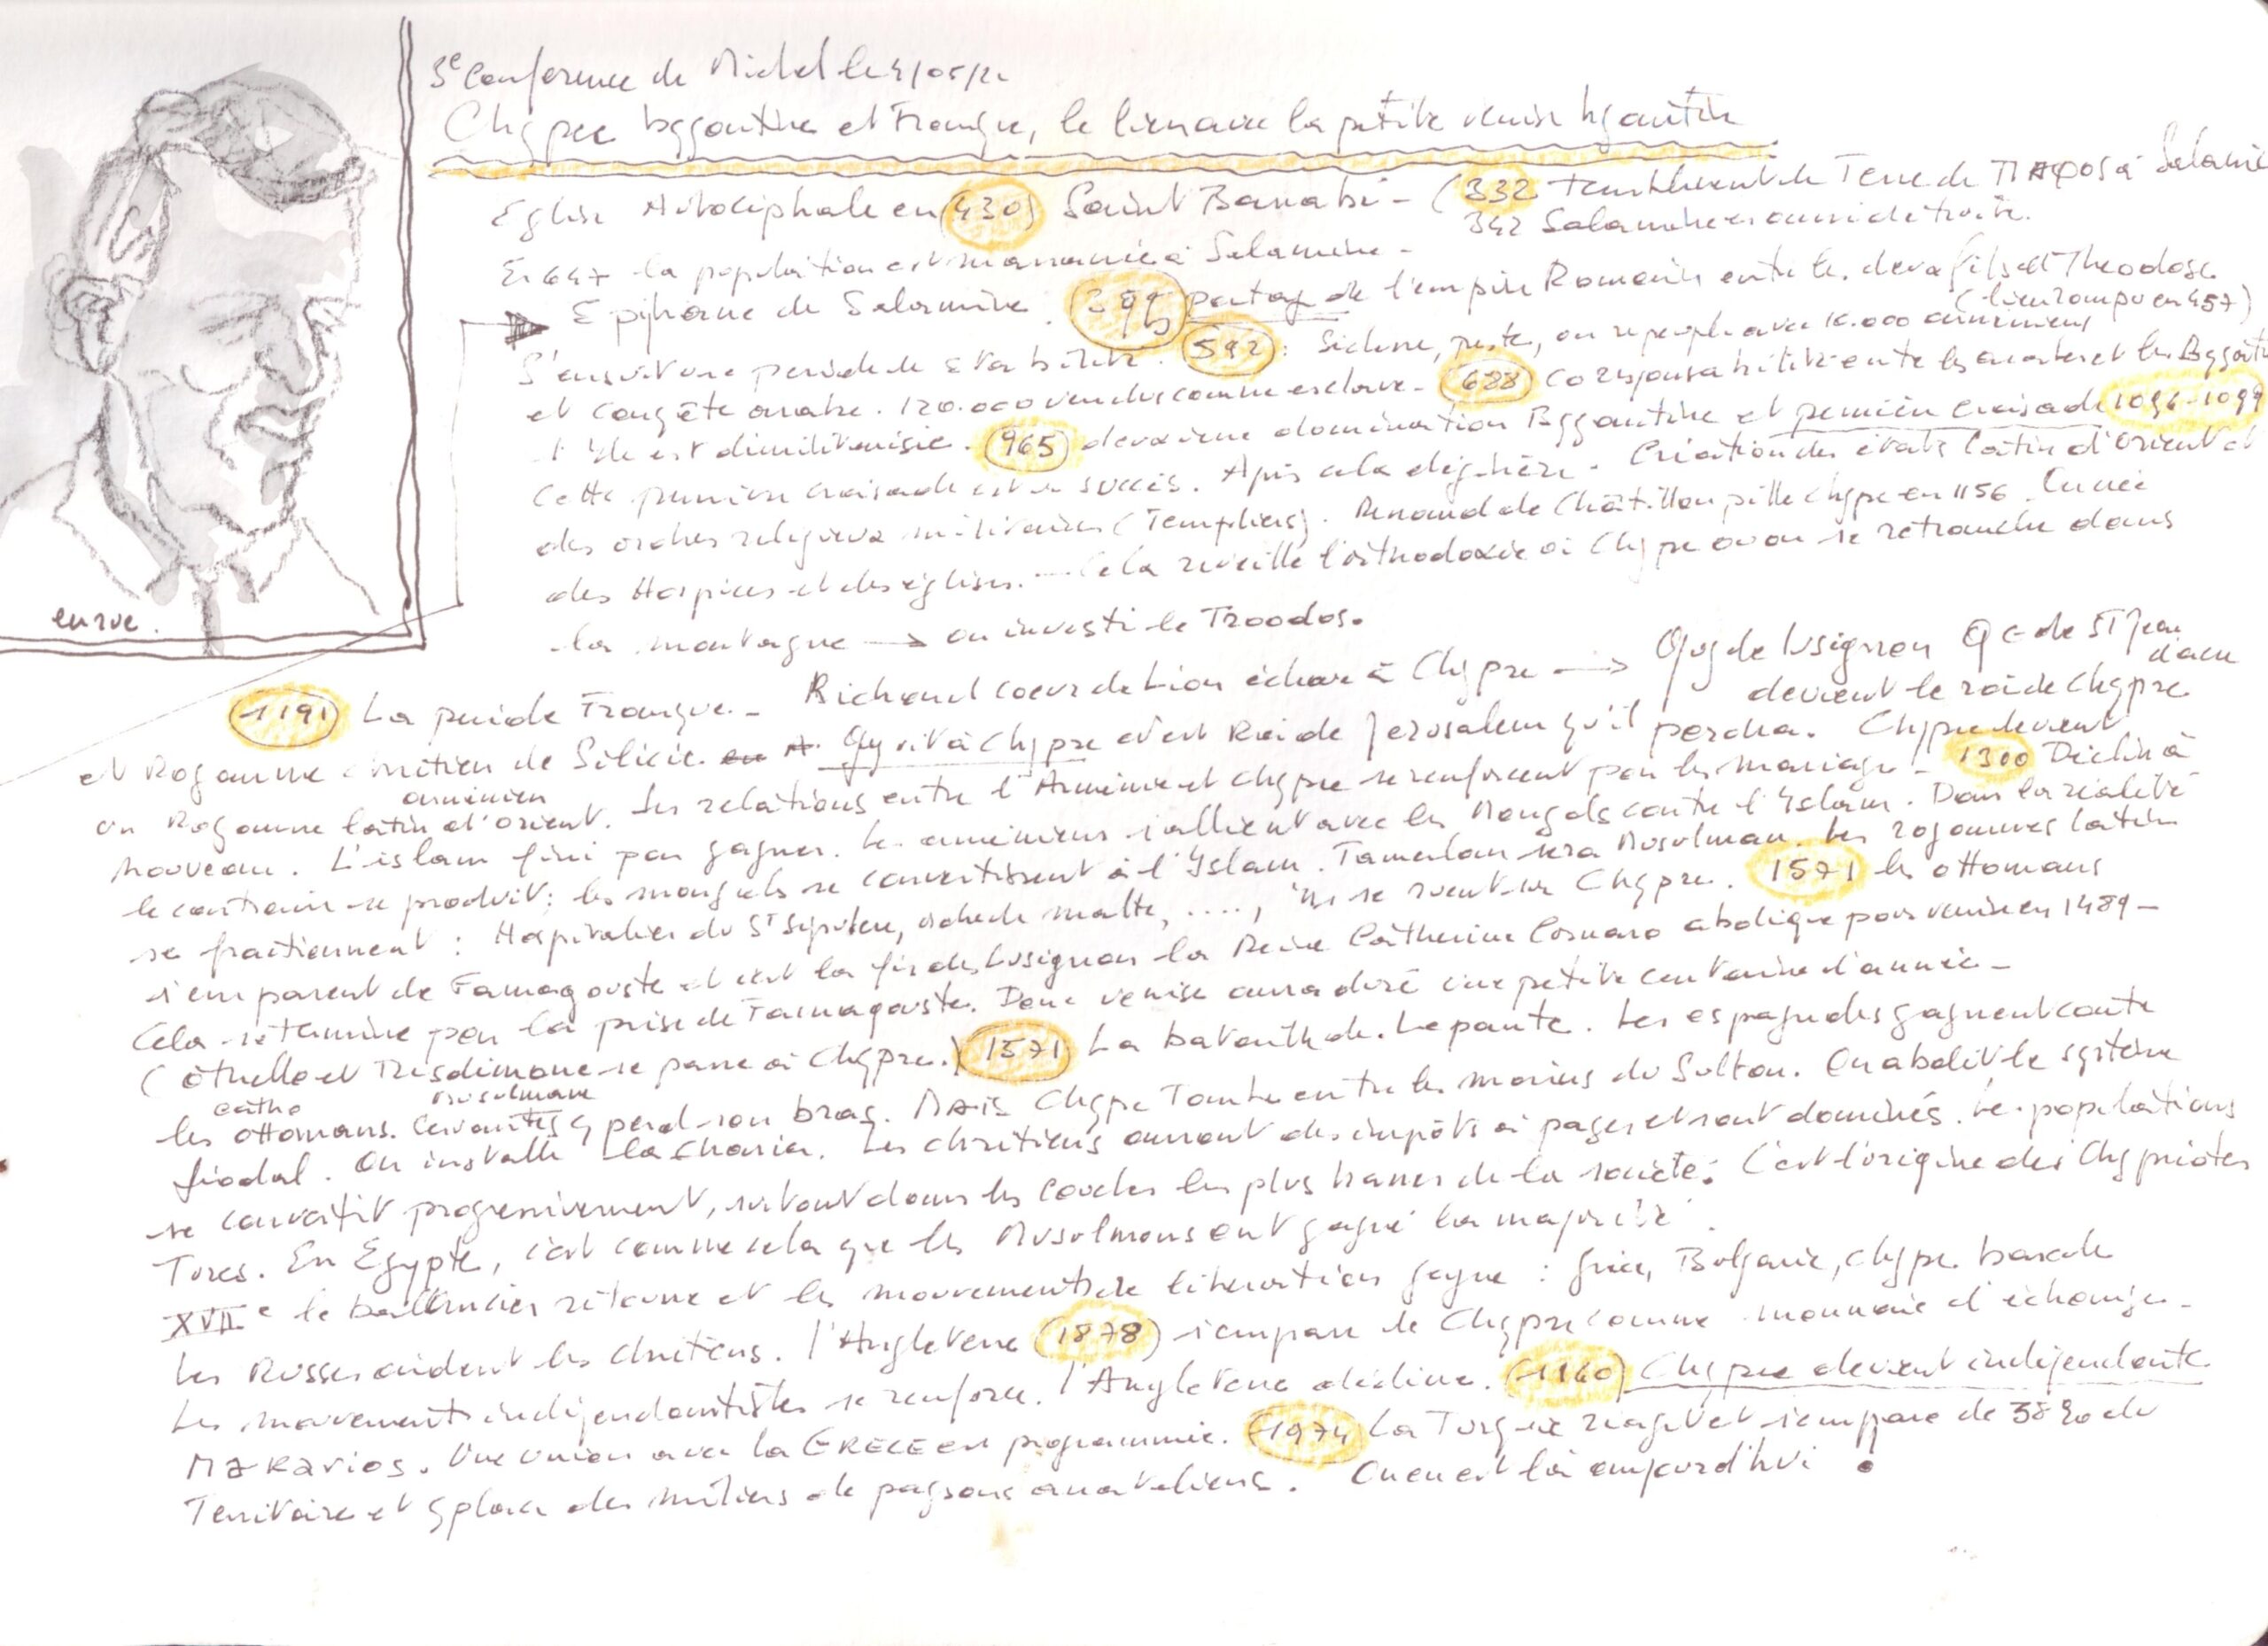 3e Conference de Michel le
Chypre byzantine et Franque, le lien avec la petite venise byzantine
Eglise Autocéphale en 430 Saint Barnabé - (332 tremblement de Terre de ΠΑφΟS à Salamine
342 Salamine est aussi détruite.
En 647 la population est massacrée à Salamine -
Epiphane de Salamine. partage de l'empire Romain entre les deux fils de Theodose
(lien rompu en 457)
S'ensuit une periode de stabilité. 592 : Sécheresse, peste, on repeuple avec 10.000 arméniens
et conquête arabe. 120.000 vendus comme esclave - 688 coresponsabilité entre les arabes et les Byzantins
l'Île est démilitarisée. 965 deuxième domination Byzantine et première croisade 1096-1099
Cette première croisade est un succès. Après cela dégénère. Création des états latin d'orient et
des ordres religieux militaires (Templiers). Renaud de Châtillon pille Chypre en 1156. On crée
des Hospices et des églises. ... Cela réveille l'orthodoxie à Chypre où on se retranche dans
la montagne → on investi le Troodos.
en rue.
1191 La période Franque - Richard coeur de Lion échoue à Chypre → Guy de Lusignan de ST Jean
d'acre
devient le roi de Chypre
et Royaume chrétien de Silicie. Guy vit à Chypre et est Roi de Jerusalem qu'il perdra. Chypre devient
arménien
un Royaume latin d'orient. Les relations entre l'Arménie et Chypre se renforcent par les mariage - 1300 Déclin à
nouveau. L'islam fini par gagner. Les arméniens s'allient avec les Mongols contre l'Islam. Dans la réalité
le contraire se produit; les mongols se convertissent à l'Islam. Tamerlan sera Musulman. Les royaumes latin
se fractionnent : Hospitalier du St Sépulcre, ordre de malte, ...., ils se ruent sur Chypre. 1571 les ottomans
s'emparent de Famagouste et c'est la fin des Lusignan la Reine Catherine Cornaro abdique pour venise en 1489 -
Cela se termine par la prise de Famagouste. Donc venise aura duré une petite centaine d'année -
(Othello et Desdimone se passe à Chypre.) 1571 La bataille de Lepante. Les espagnols gagnent contre
catho musulmane
les ottomans. Cervantes y perd son bras. Mais Chypre Tombe entre les mains du Sultan. On abolit le système
féodal. On installe la Charia. Les chrétiens auront des impôts à payer et sont dominés. Les populations
se convertit progressivement, surtout dans les couches les plus basses de la société. C'est l'origine des Chypriotes
Turcs. En Egypte, c'est comme cela que les Musulmans ont gagné la majorité.
XVIIe le balancier retourne et les mouvements de liberation gagne : Grèce, Bulgarie, Chypre bascule
Les Russes aident les chrétiens. l'Angleterre 1878 s'empare de Chypre comme monnaie d'échange -
Les mouvements indépendantistes se renforce. l'Angleterre décline. 1960 Chypre devient indépendante.
MaKarios. Une union avec la GRECE est programmée. 1974 La Turquie réagit et s'empare de 38% du
Territoire et y place des milliers de paysans anatoliens. On en est là aujourd'hui !